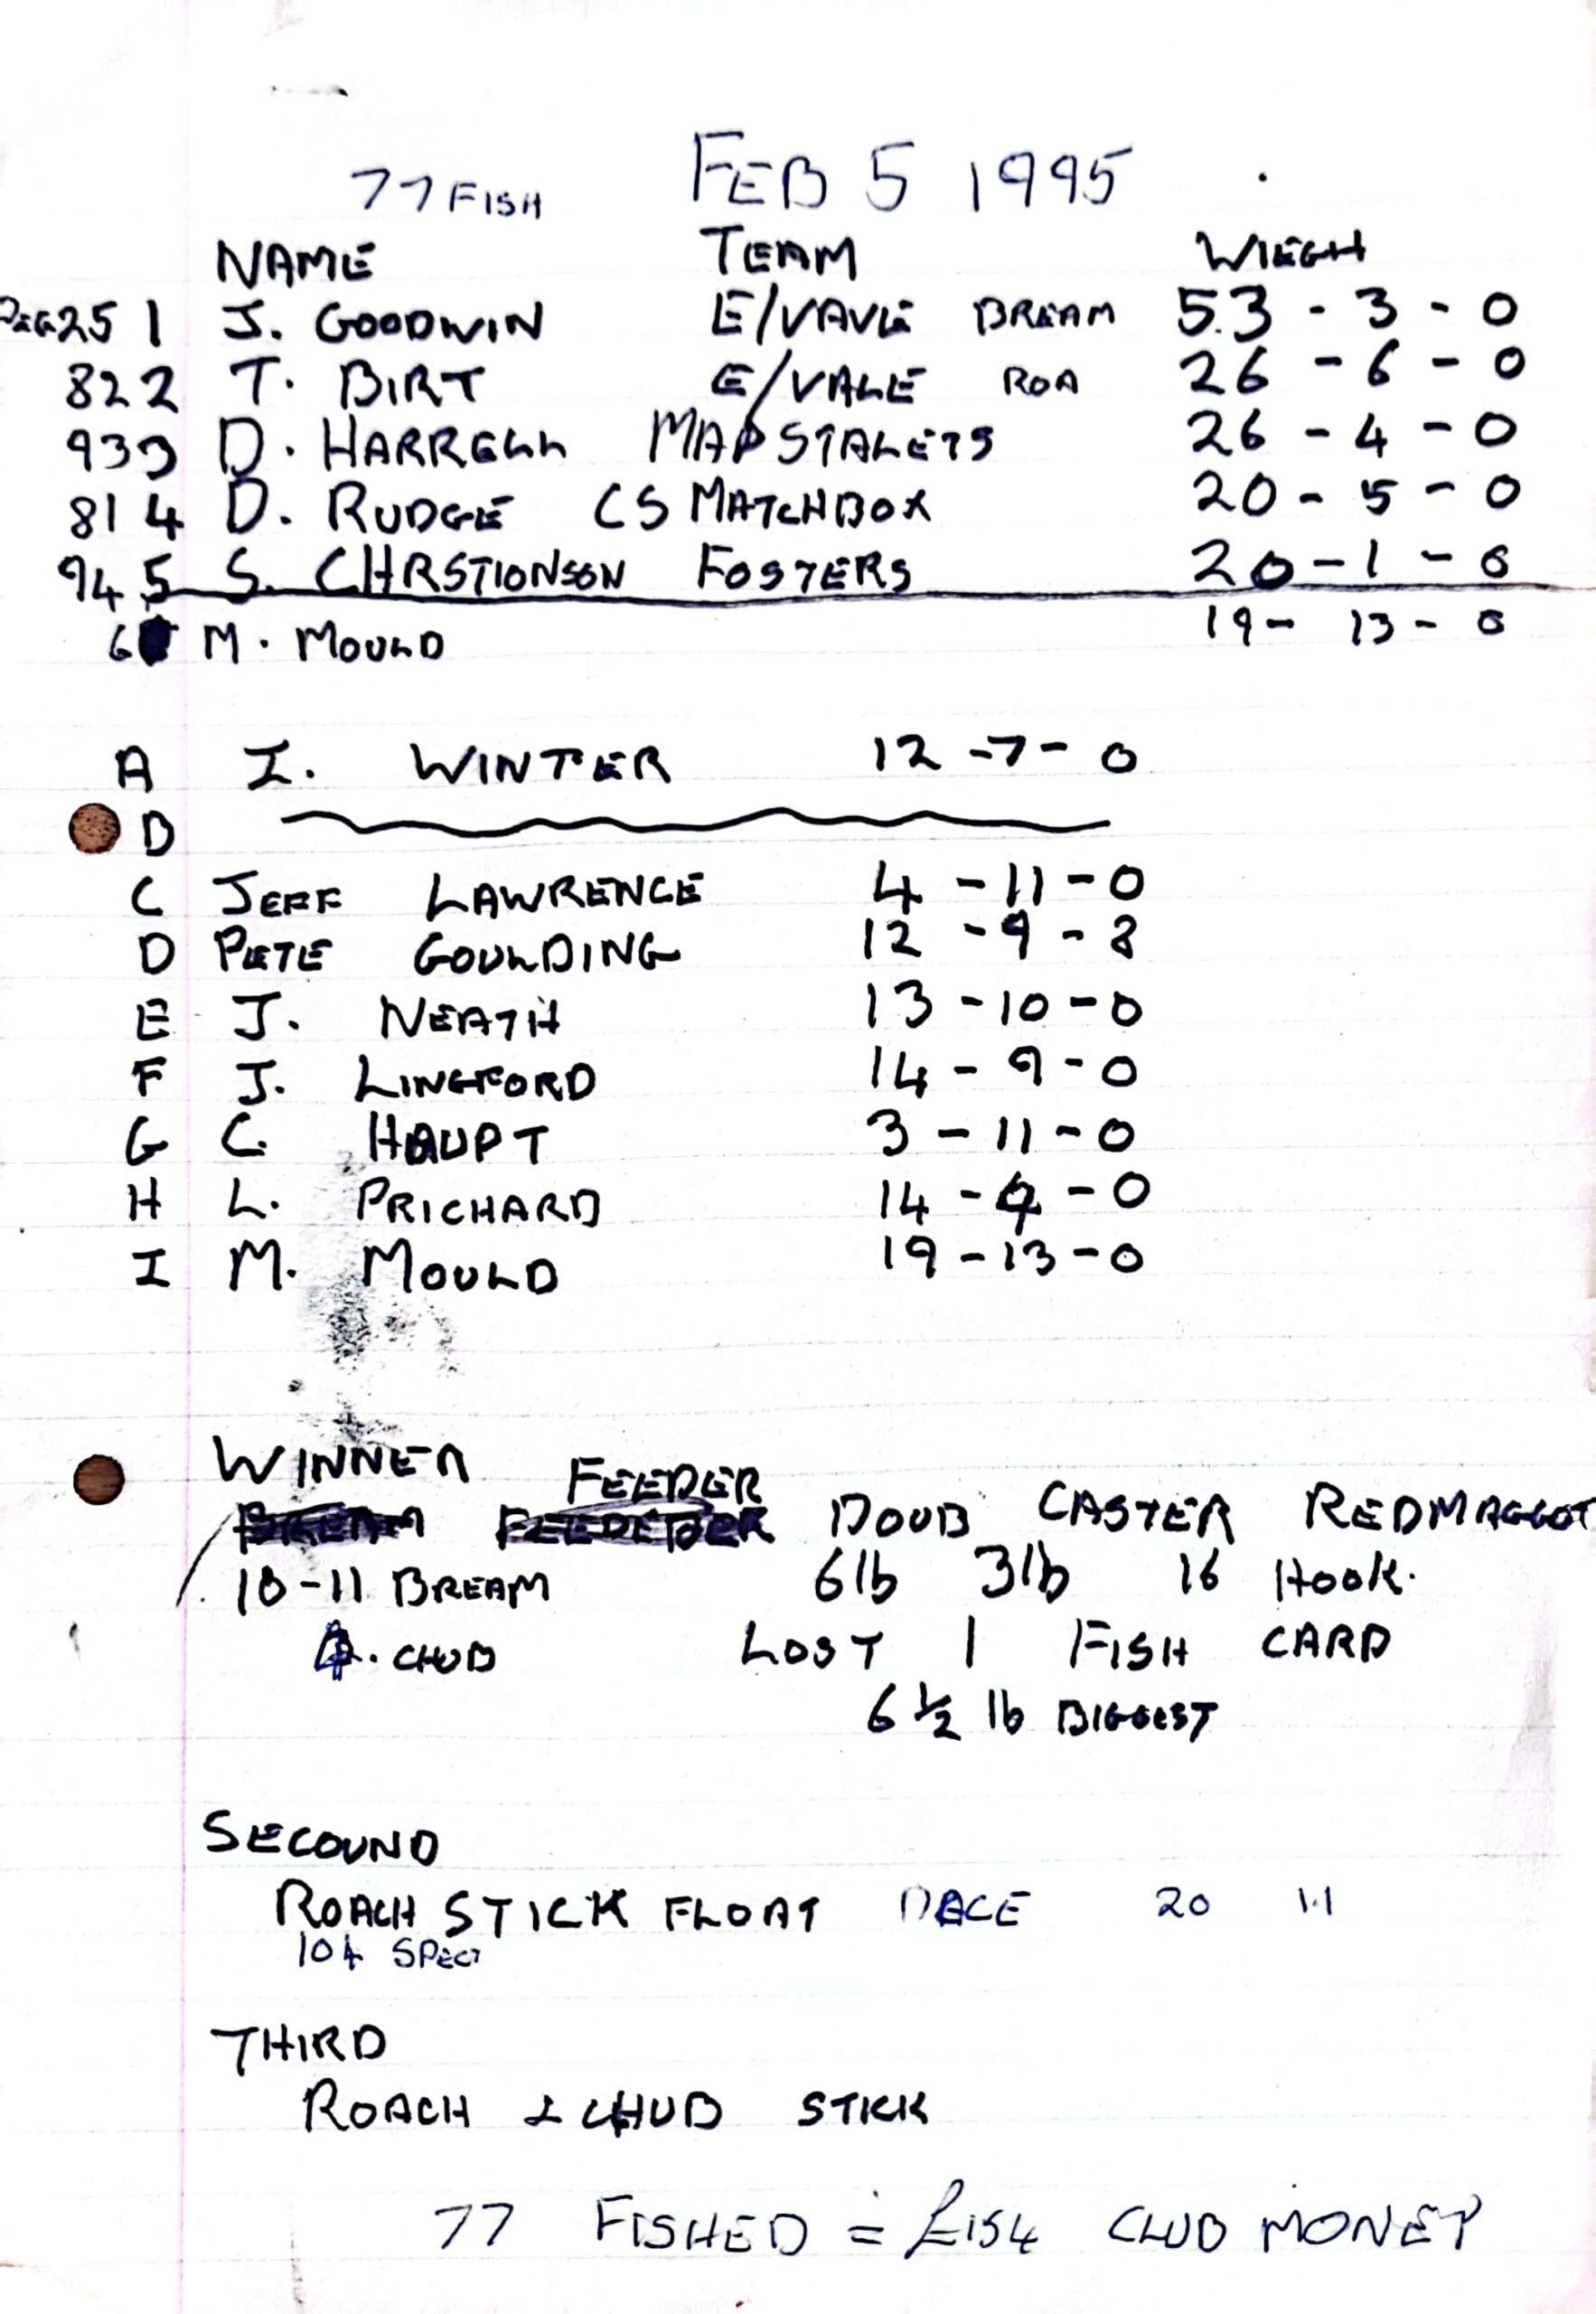 77 FISH FEB 5 1995
NAME TEAM WIEGH
PEG 25 1 J. GOODWIN E/VAVLE BREAM 53 - 3 - 0
82 2 T. BIRT E/VALE ROA 26 - 6 - 0
93 3 D. HARRELL MAPSTALETS 26 - 4 - 0
81 4 D. RUDGE CS MATCHBOX 20 - 5 - 0
94 5 S. CHRSTIONSON FOSTERS 20 - 1 - 0
6 M. MOULD 19 - 13 - 0
A I. WINTER 12 - 7 - 0
B
C JEFF LAWRENCE 4 - 11 - 0
D PETE GOULDING 12 - 9 - 8
E J. NEATH 13 - 10 - 0
F J. LINGFORD 14 - 9 - 0
G C. HAUPT 3 - 11 - 0
H L. PRICHARD 14 - - 0
I M. MOULD 19 - 13 - 0
WINNER FEEDER
DOUB CASTER REDMAGGOT
10 - 11 BREAM 6lb 3lb 16 HOOK.
. CHUB LOST 1 FISH CARD
6 ½ lb BIGGEST
SECOUND
ROACH STICK FLOAT DACE 20 1.1
104 SPECT
THIRD
ROACH & CHUB STICK
77 FISHED = £154 CLUB MONEY